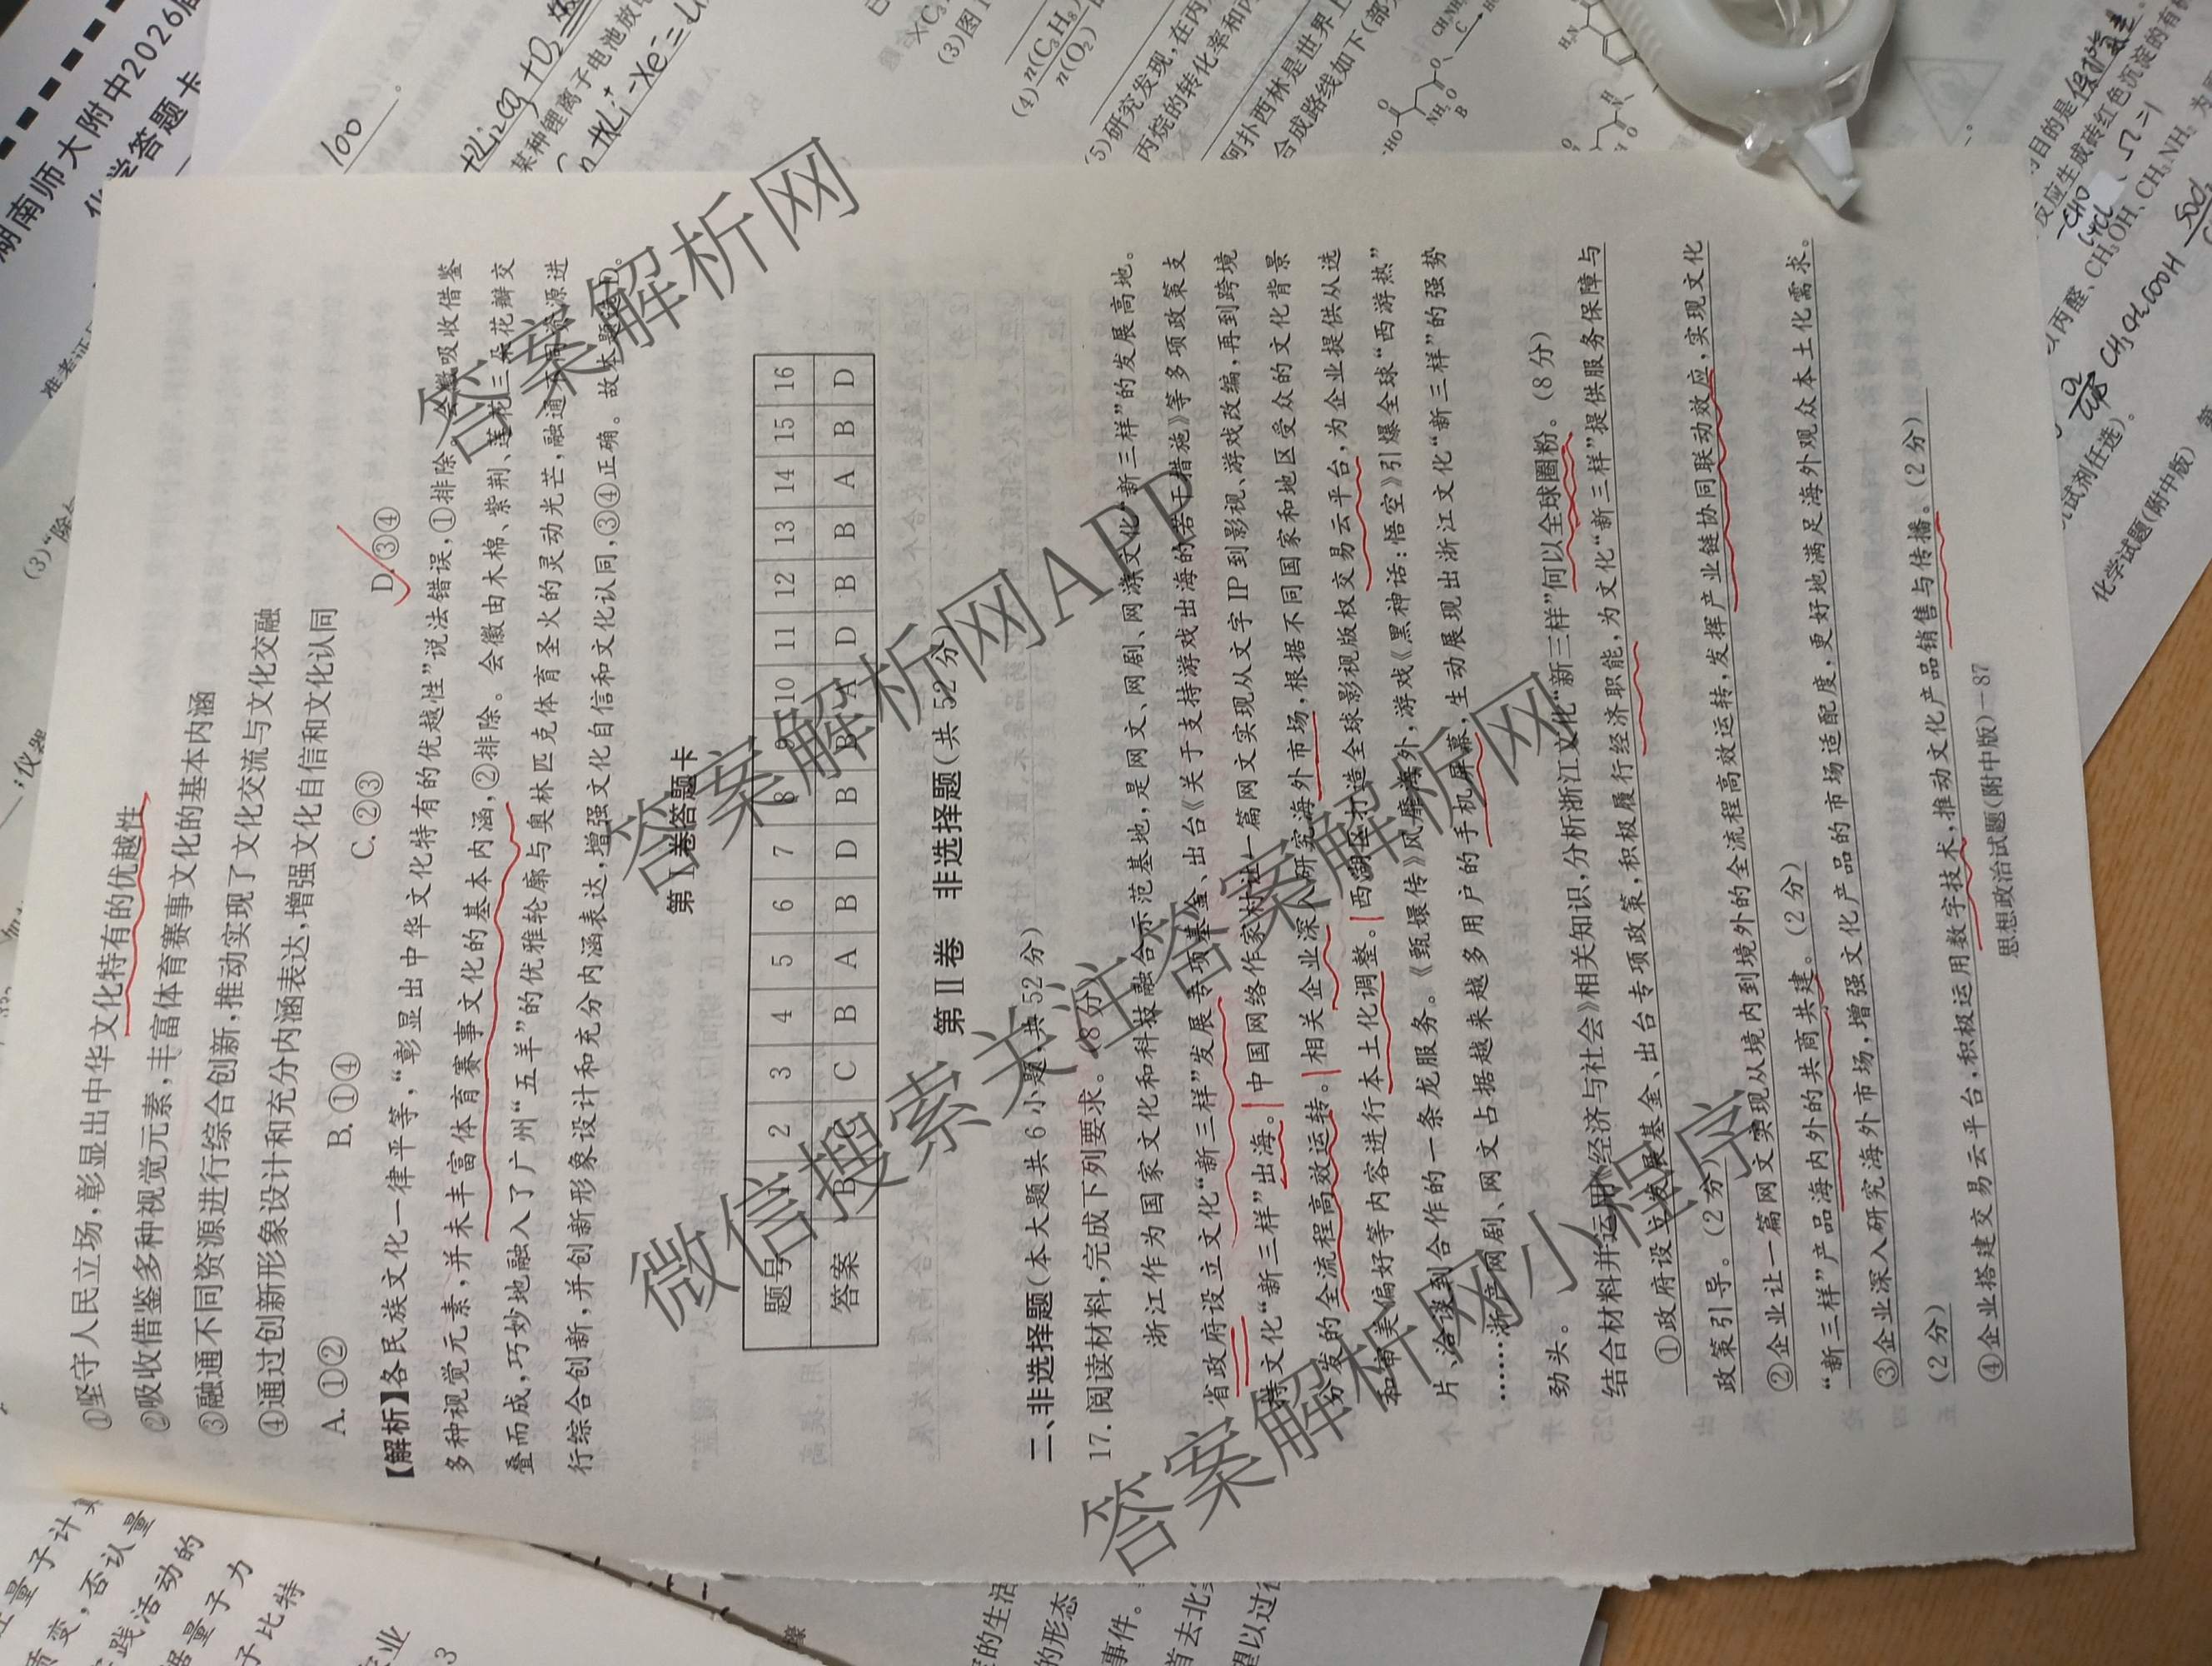 ①坚守人民立场,彰显出中华文化特有的优越性
②吸收借鉴多种视觉元素,丰富体育赛事文化的基本内涵
③融通不同资源进行综合创新,推动实现了文化交流与文化交融
④通过创新形象设计和充分内涵表达,增强文化自信和文化认同
A.①② B.①④ C.②③ D.③④
【解析】各民族文化一律平等,“彰显出中华文化特有的优越性”说法错误,①排除。会徽吸收借鉴
多种视觉元素,并未丰富体育赛事文化的基本内涵,②排除。会徽由木棉、紫荆、莲花三朵花瓣交
叠而成,巧妙地融入了广州“五羊”的优雅轮廓与奥林匹克体育圣火的灵动光芒,融通不同资源进
行综合创新,并创新形象设计和充分内涵表达,增强文化自信和文化认同,③④正确。故本题选D。
第Ⅰ卷答题卡
题号 1 2 3 4 5 6 7 8 9 10 11 12 13 14 15 16
答案 B C C B A B D B B A D B B A B D
第Ⅱ卷 非选择题(共 52 分)
二、非选择题(本大题共 6 小题,共 52 分)
17. 阅读材料,完成下列要求。(8 分)
浙江作为国家文化和科技融合示范基地,是网文、网剧、网游文化“新三样”的发展高地。
省政府设立文化“新三样”发展专项基金、出台《关于支持游戏出海的若干措施》等多项政策支
持文化“新三样”出海。中国网络作家村让一篇网文实现从文字IP到影视、游戏改编,再到跨境
分发的全流程高效运转。相关企业深入研究海外市场,根据不同国家和地区受众的文化背景
和审美偏好等内容进行本土化调整。西湖区打造全球影视版权交易云平台,为企业提供从选
片、洽谈到合作的一条龙服务。《甄嬛传》风靡海外,游戏《黑神话:悟空》引爆全球“西游热”
……浙产网剧、网文占据越来越多用户的手机屏幕,生动展现出浙江文化“新三样”的强势
劲头。
结合材料并运用《经济与社会》相关知识,分析浙江文化“新三样”何以全球圈粉。(8 分)
①政府设立发展基金、出台专项政策,积极履行经济职能,为文化“新三样”提供服务保障与
政策引导。(2 分)
②企业让一篇网文实现从境内到境外的全流程高效运转,发挥产业链协同联动效应,实现文化
“新三样”产品海内外的共商共建。(2 分)
③企业深入研究海外市场,增强文化产品的市场适配度,更好地满足海外观众本土化需求。
(2 分)
④企业搭建交易云平台,积极运用数字技术,推动文化产品销售与传播。(2 分)
思想政治试题(附中版)-87
答案解析网
微信搜索关注答案解析网APP
答案解析网
答案解析网小程序
湖南师大附中2026届
化学答题卡
100
某种锂离子电池放电
(3)图1
(4)
n(C₃H₈)
n(O₂)
(5)研究发现,在丙
丙烷的转化率和丙
阿扑西林是世界上
合成路线如下(部
目的是保护氨基。
反应生成砖红色沉淀的有机
CH₃CH₂COOH
试剂任选)。
化学试题(附中版)